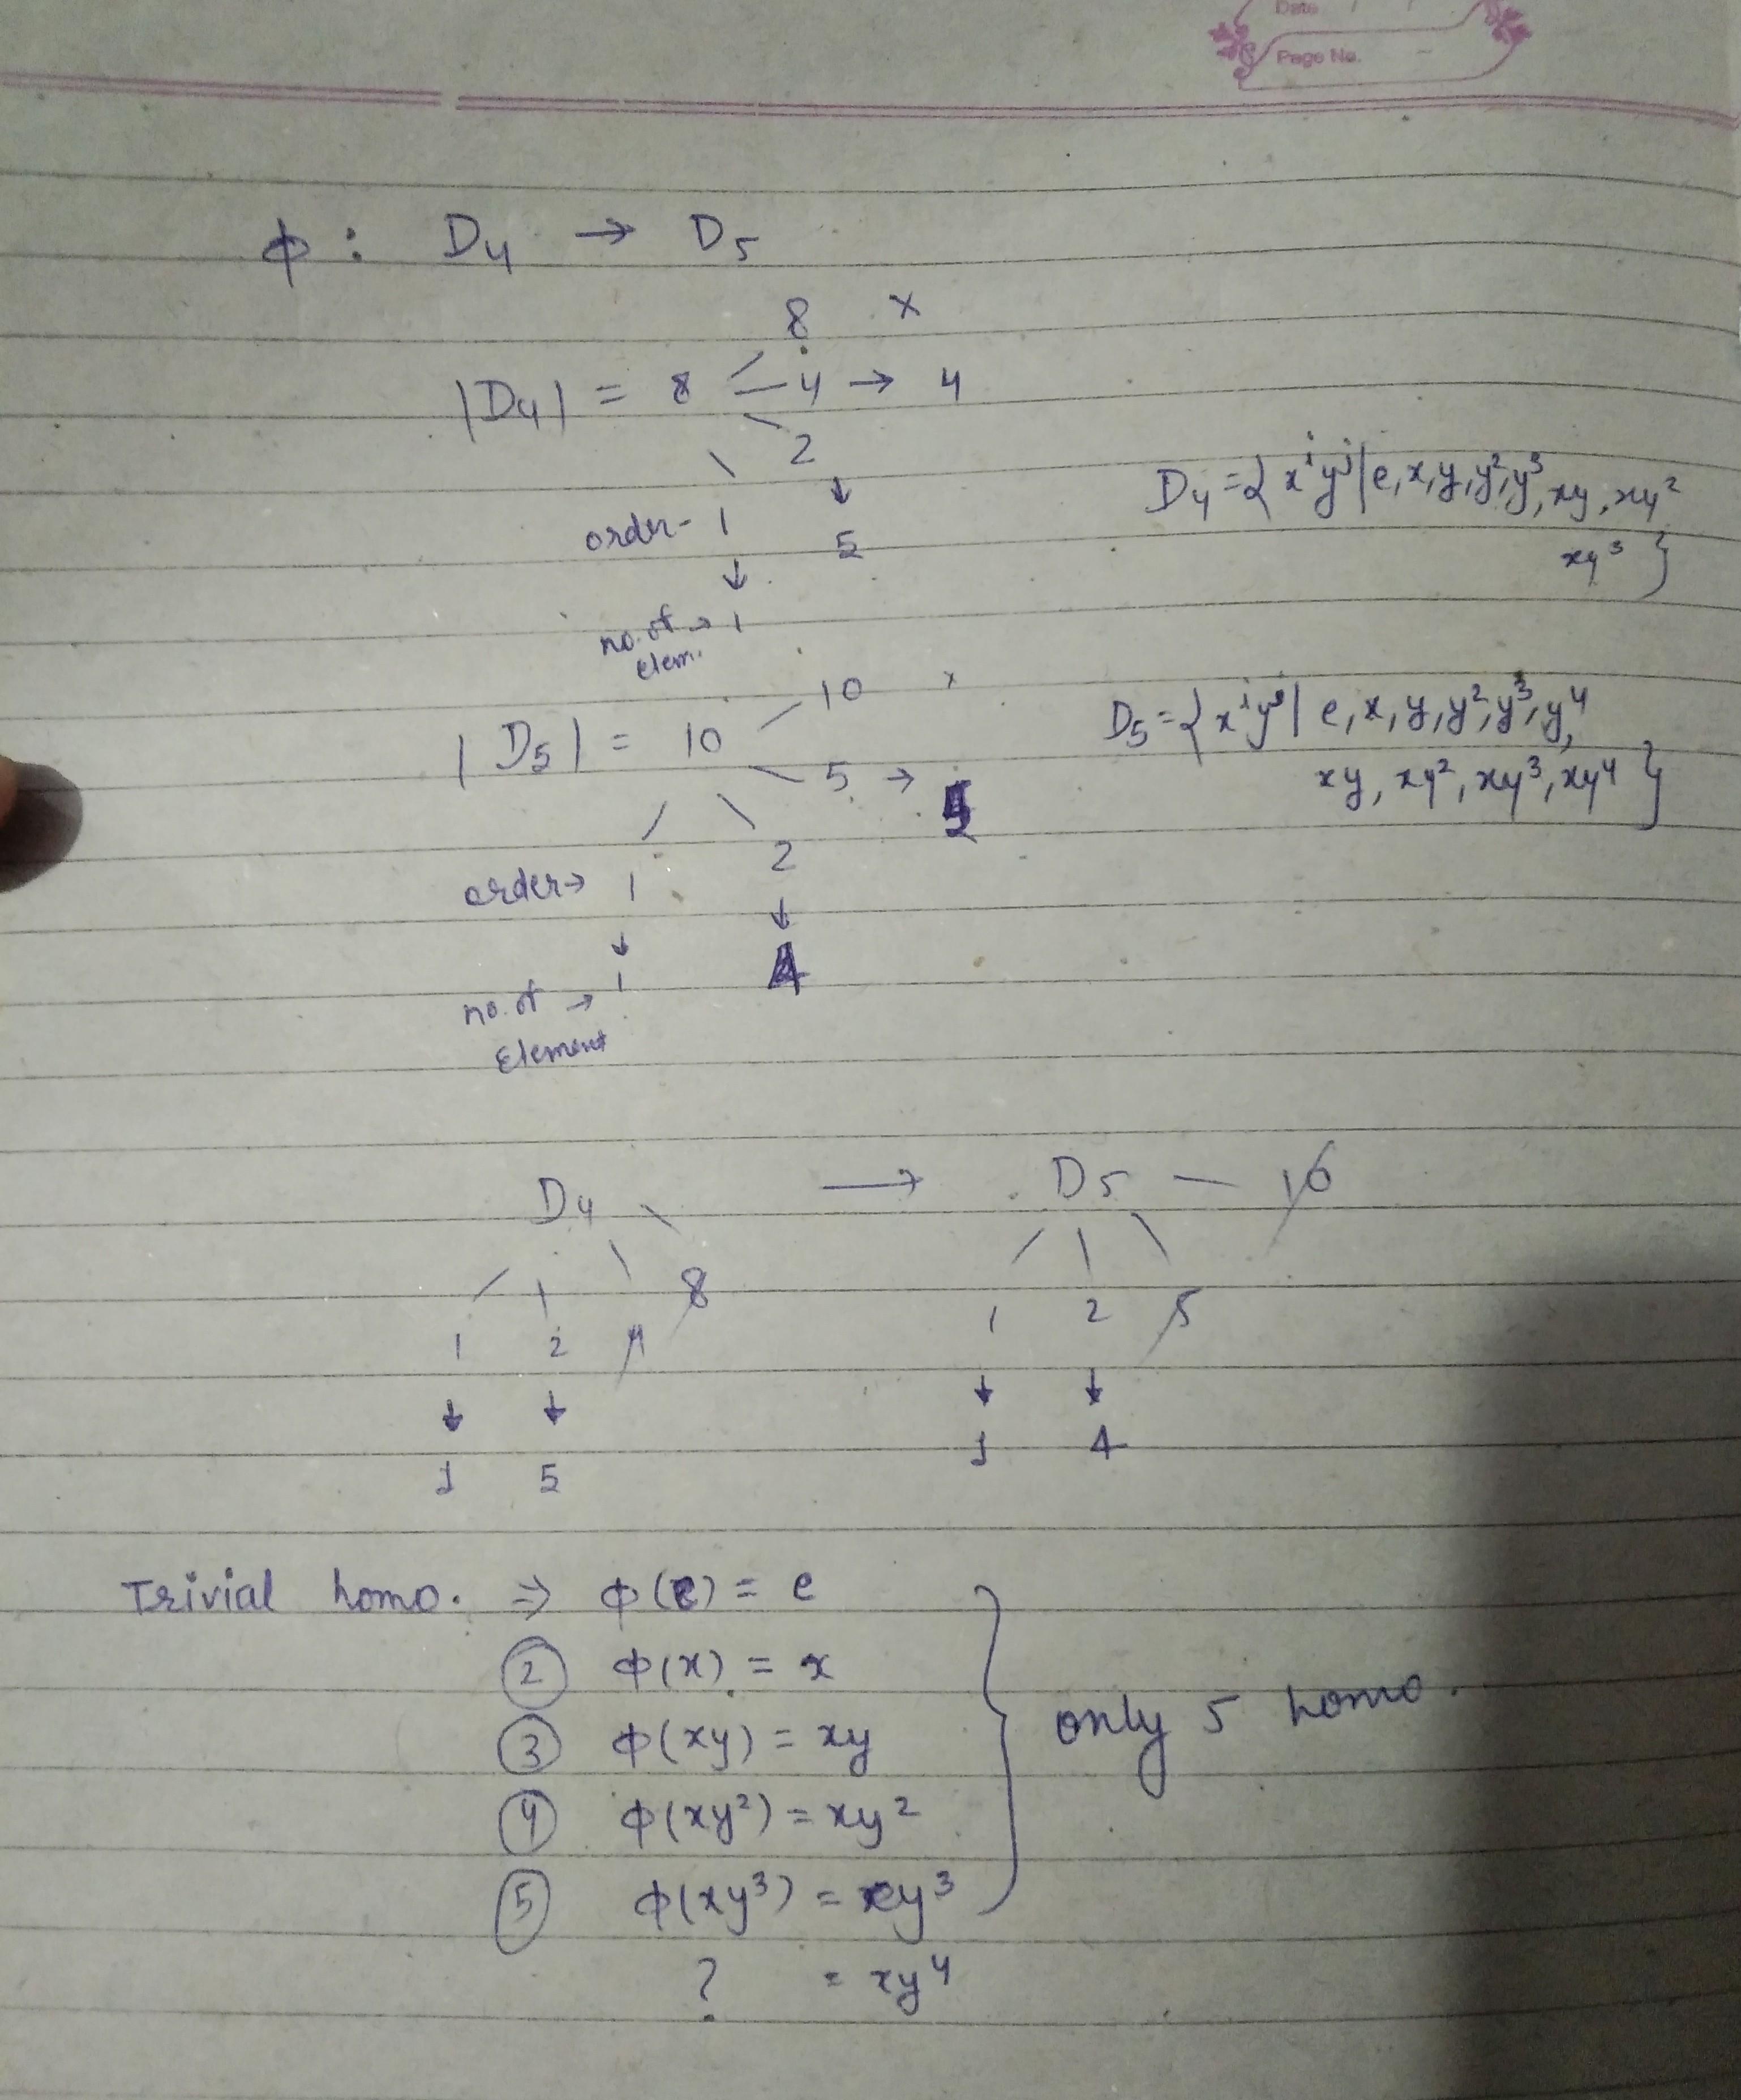 Date / /
Page No.
ϕ : D₄ → D₅
8 ×
|D₄| = 8 4 → 4
2
order- 1 5
no. of → 1
elem.
D₄ = { xⁱyʲ | e, x, y, y², y³, xy, xy²
xy³ }
10 ×
|D₅| = 10
5 →
order → 1 2
no. of → 1
Element
D₅ = { xⁱyʲ | e, x, y, y², y³, y⁴,
xy, xy², xy³, xy⁴ }
D₄ → D₅ — 10
1 2 4 8
1 2 5
1 5
1 4
Trivial homo. ⇒ ϕ(e) = e
② ϕ(x) = x
③ ϕ(xy) = xy
④ ϕ(xy²) = xy²
⑤ ϕ(xy³) = xy³
? = xy⁴
only 5 homo.